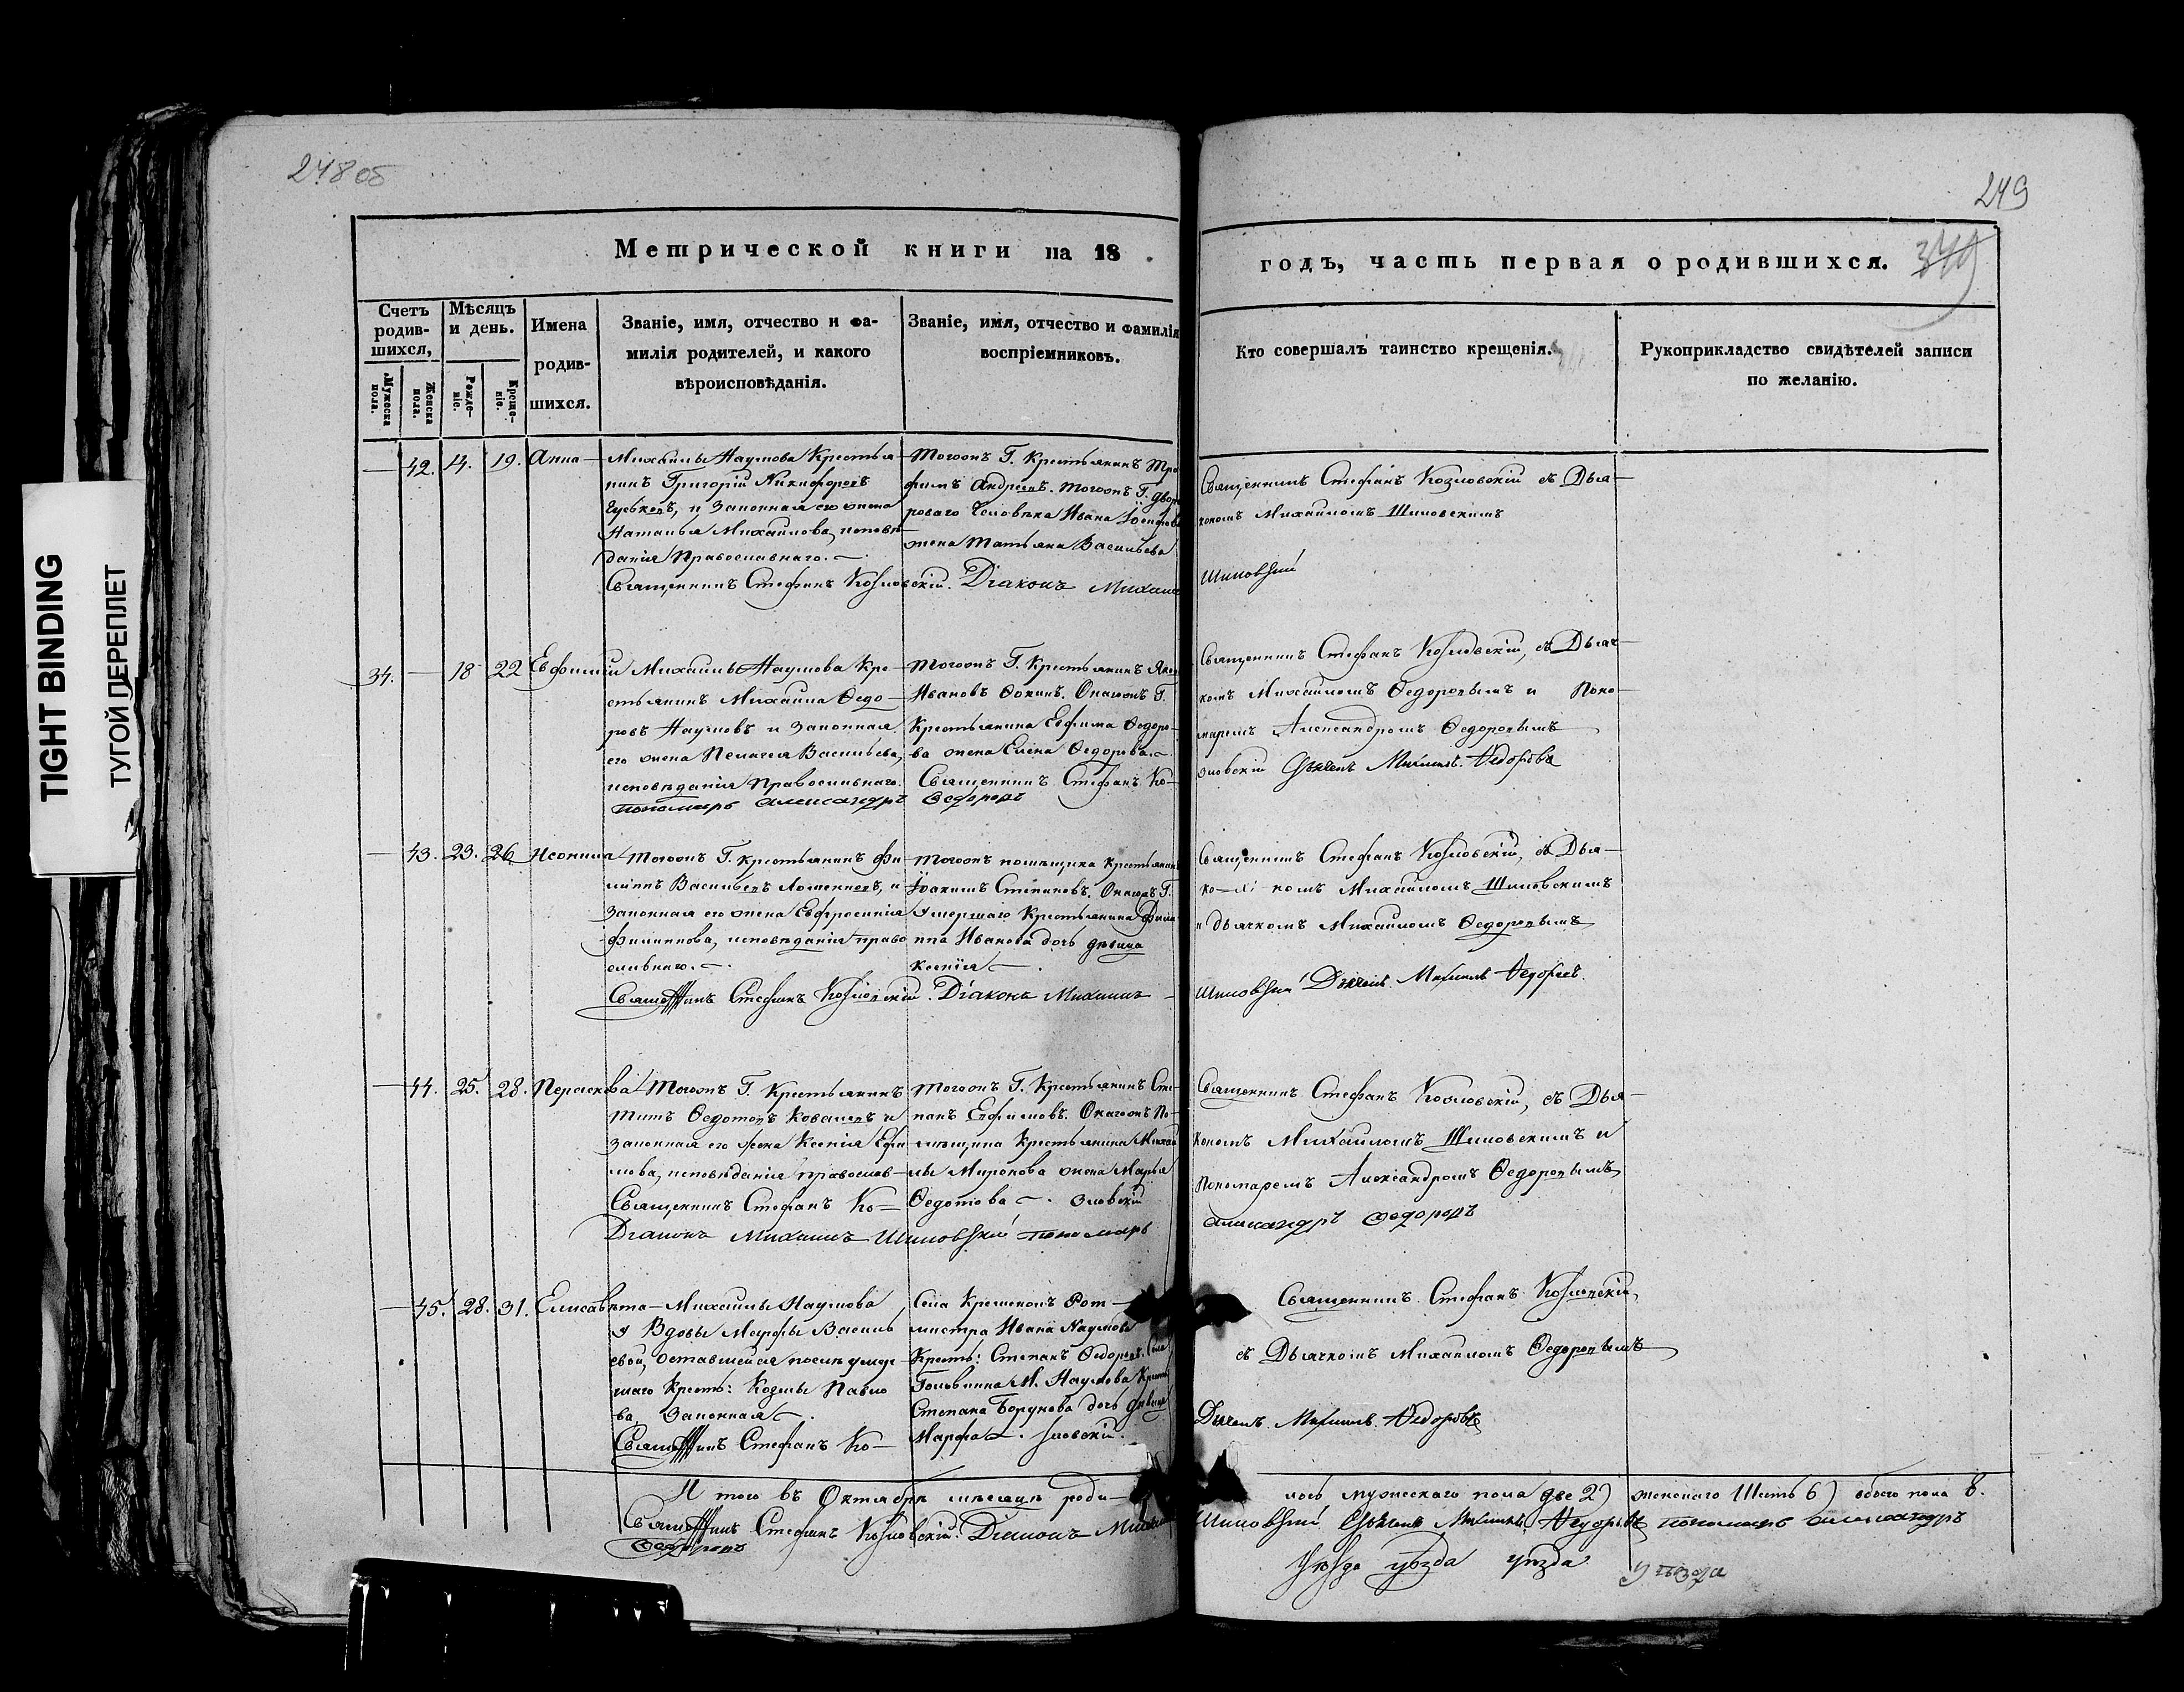 248 об
249
349
TIGHT BINDING
ТУГОЙ ПЕРЕПЛЕТ
Метрической книги на 18
годъ, часть первая о родившихся.
Счетъ родив-шихся,
Мѣсяцъ и день.
Имена родив-шихся.
Званіе, имя, отчество и фа-
милія родителей, и какого
вѣроисповѣданія.
Званіе, имя, отчество и фамилія
воспріемниковъ.
Кто совершалъ таинство крещенія.
Рукоприкладство свидѣтелей записи
по желанію.
Мужеска пола.
Женска пола.
Рожде-ніе.
Креще-ніе.
— 42. 14. 19. Анна
Михайлы Наумова Крестья-
нинъ Григорій Никифоровъ
и Законная его жена
Наталья Михайлова, исповѣ-
данія Православнаго.
Священникъ Стефанъ Козловскій. Діаконъ Михаилъ
Тогожъ Г. Крестьянинъ Тро
фимъ Андреевъ. Тогожъ Г. Дво
роваго Человѣка Ивана
жена Татьяна Васильева
Священникъ Стефанъ Козловскій съ Дья-
кономъ Михаиломъ Шиповскимъ
Шиповскій
34. — 18 22 Евфимій
Михайлы Наумова Кре-
стьянинъ Михайла Ѳедо-
ровъ Наумовъ и Законная
его жена Пелагея Васильева,
исповѣданія Православнаго.
Пономарь Александръ Ѳедоровъ
Тогожъ Г. Крестьянинъ
Ивановъ Ѳокинъ. Онагожъ Г.
Крестьянина Евфима Ѳедоро-
ва жена Елена Ѳедорова.
Священникъ Стефанъ Ко-
Священникъ Стефанъ Козловскій, съ Дьяч-
комъ Михаиломъ Ѳедоровымъ и Поно-
маремъ Александромъ Ѳедоровымъ
зловскій Дьячекъ Михаилъ Ѳедоровъ
— 43. 23. 26
Тогожъ Г. крестьянинъ Фи-
липъ Васильевъ и
Законная его жена Евфросинія
Филиппова, исповѣданія право
славнаго.
Священникъ Стефанъ Козловскій. Діаконъ Михаилъ
Тогожъ помѣщика Крестьянинъ
Іоакимъ Степановъ. Онагожъ Г.
Умершаго Крестьянина Фили
ппа Иванова дочь дѣвица
Ксенія
Священникъ Стефанъ Козловскій, съ Дья-
ко- номъ Михаиломъ Шиповскимъ
и дьячкомъ Михаиломъ Ѳедоровымъ
Шиповскій Дьячекъ Михаилъ Ѳедоровъ.
— 44. 25. 28. Параскева
Тогожъ Г. Крестьянинъ
Титъ Ѳедотовъ Ковалевъ и
Законная его жена Ксенія Ефи
мова, исповѣданія православ-
Священникъ Стефанъ Ко-
Діаконъ Михаилъ Шиповскій Пономарь
Тогожъ Г. Крестьянинъ Сте-
панъ Ефимовъ. Онагожъ По-
мѣщика Крестьянина Михай
лы Миронова жена Марья
Ѳедотова. зловскій
Священникъ Стефанъ Козловскій, съ Дья-
кономъ Михаиломъ Шиповскимъ и
Пономаремъ Александромъ Ѳедоровымъ
Александръ Ѳедоровъ
— 45. 28. 31. Елисавета
Михайлы Наумова
у Вдовы Марфы Василь
евой, оставшейся послѣ умер-
шаго Крестъ: Козмы Павло
ва, Законная.
Священникъ Стефанъ Ко-
Села Ротмистра Ивана Наумова
Крестъ: Степанъ Ѳедоровъ. Села
М. Наумова Крестъ
Степана Борунова дочь дѣвица
Марфа. зловскій.
Священникъ Стефанъ Козловскій
съ Дьячкомъ Михаиломъ Ѳедоровымъ
Дьячекъ Михаилъ Ѳедоровъ
И того въ Октябрѣ мѣсяцѣ роди-
лось мужескаго пола две 2) женскаго Шесть 6) обоего пола 8.
Священникъ Стефанъ Козловскій. Діаконъ Михаилъ Шиповскій Дьячекъ Михаилъ Ѳедоровъ Пономарь Александръ
Ѳедоровъ
уѣзда уѣзда уѣзда уѣзда